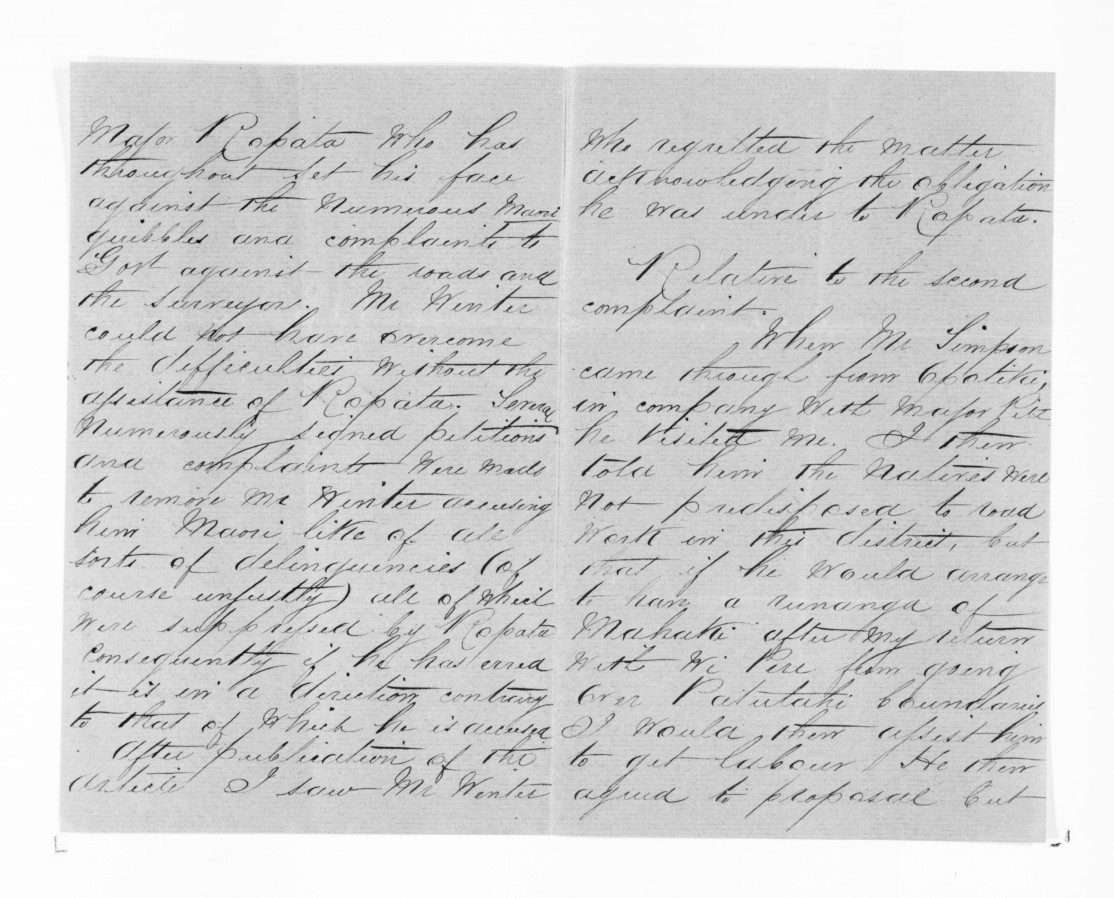 Major Ropata who has
throughout set his face
against the numerous Maori
quibbles and complaints to
Govt against the roads and
the surveyor. Mr Winter
could not have overcome
the difficulties without the
assistance of Ropata. Several
numerously signed petitions
and complaints were made
to remove Mr Winter accusing
him Maori like of all
sorts of delinquencies (of
course unjustly) all of which
were suppressed by Ropata
consequently if he has erred
it is in a direction contrary
to that of which he is accused
after publication of the
article I saw Mr Winter
who regretted the matter
acknowledging the obligation
he was under to Ropata.
Relative to the second
complaint.
When Mr Simpson
came through from Opotiki,
in company with Major Pitt
he visited me. I then
told him the Natives were
not predisposed to road
work in this district, but
that if he would arrange
to have a runanga of
Mahaki after my return
with Wi Pere from going
over Patutahi boundaries
I would then assist him
to get labour. He then
agreed to proposal but